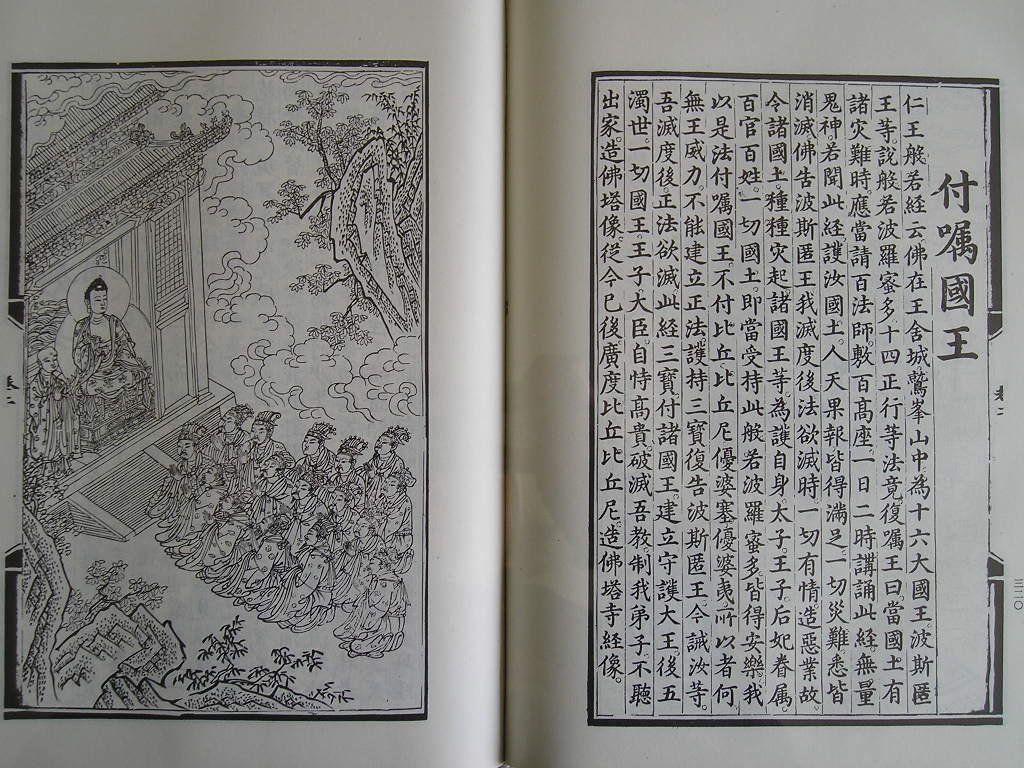 付囑國王
仁王般若經云佛在王舍城鷲峯山中為十六大國王波斯匿
王等說般若波羅蜜多十四正行等法竟復囑王曰當國土有
諸灾難時應當請百法師敷百髙座一日二時講誦此經無量
鬼神若聞此經護汝國土人天果報皆得滿足一切災難悉皆
消滅佛告波斯匿王我滅度後法欲滅時一切有情造惡業故
令諸國土種種灾起諸國王等為護自身太子王子后妃眷属
百官百姓一切國土即當受持此般若波羅蜜多皆得安樂我
以是法付囑國王不付比丘比丘尼優婆塞優婆夷所以者何
無王威力不能建立正法護持三寳復告波斯匿王今誡汝等
吾滅度後正法欲滅此經三寳付諸國王建立守護大王後五
濁世一切國王王子大臣自恃髙貴破滅吾教制我弟子不聽
出家造佛塔像從今已後廣度比丘比丘尼造佛塔寺經像
卷二
三二〇